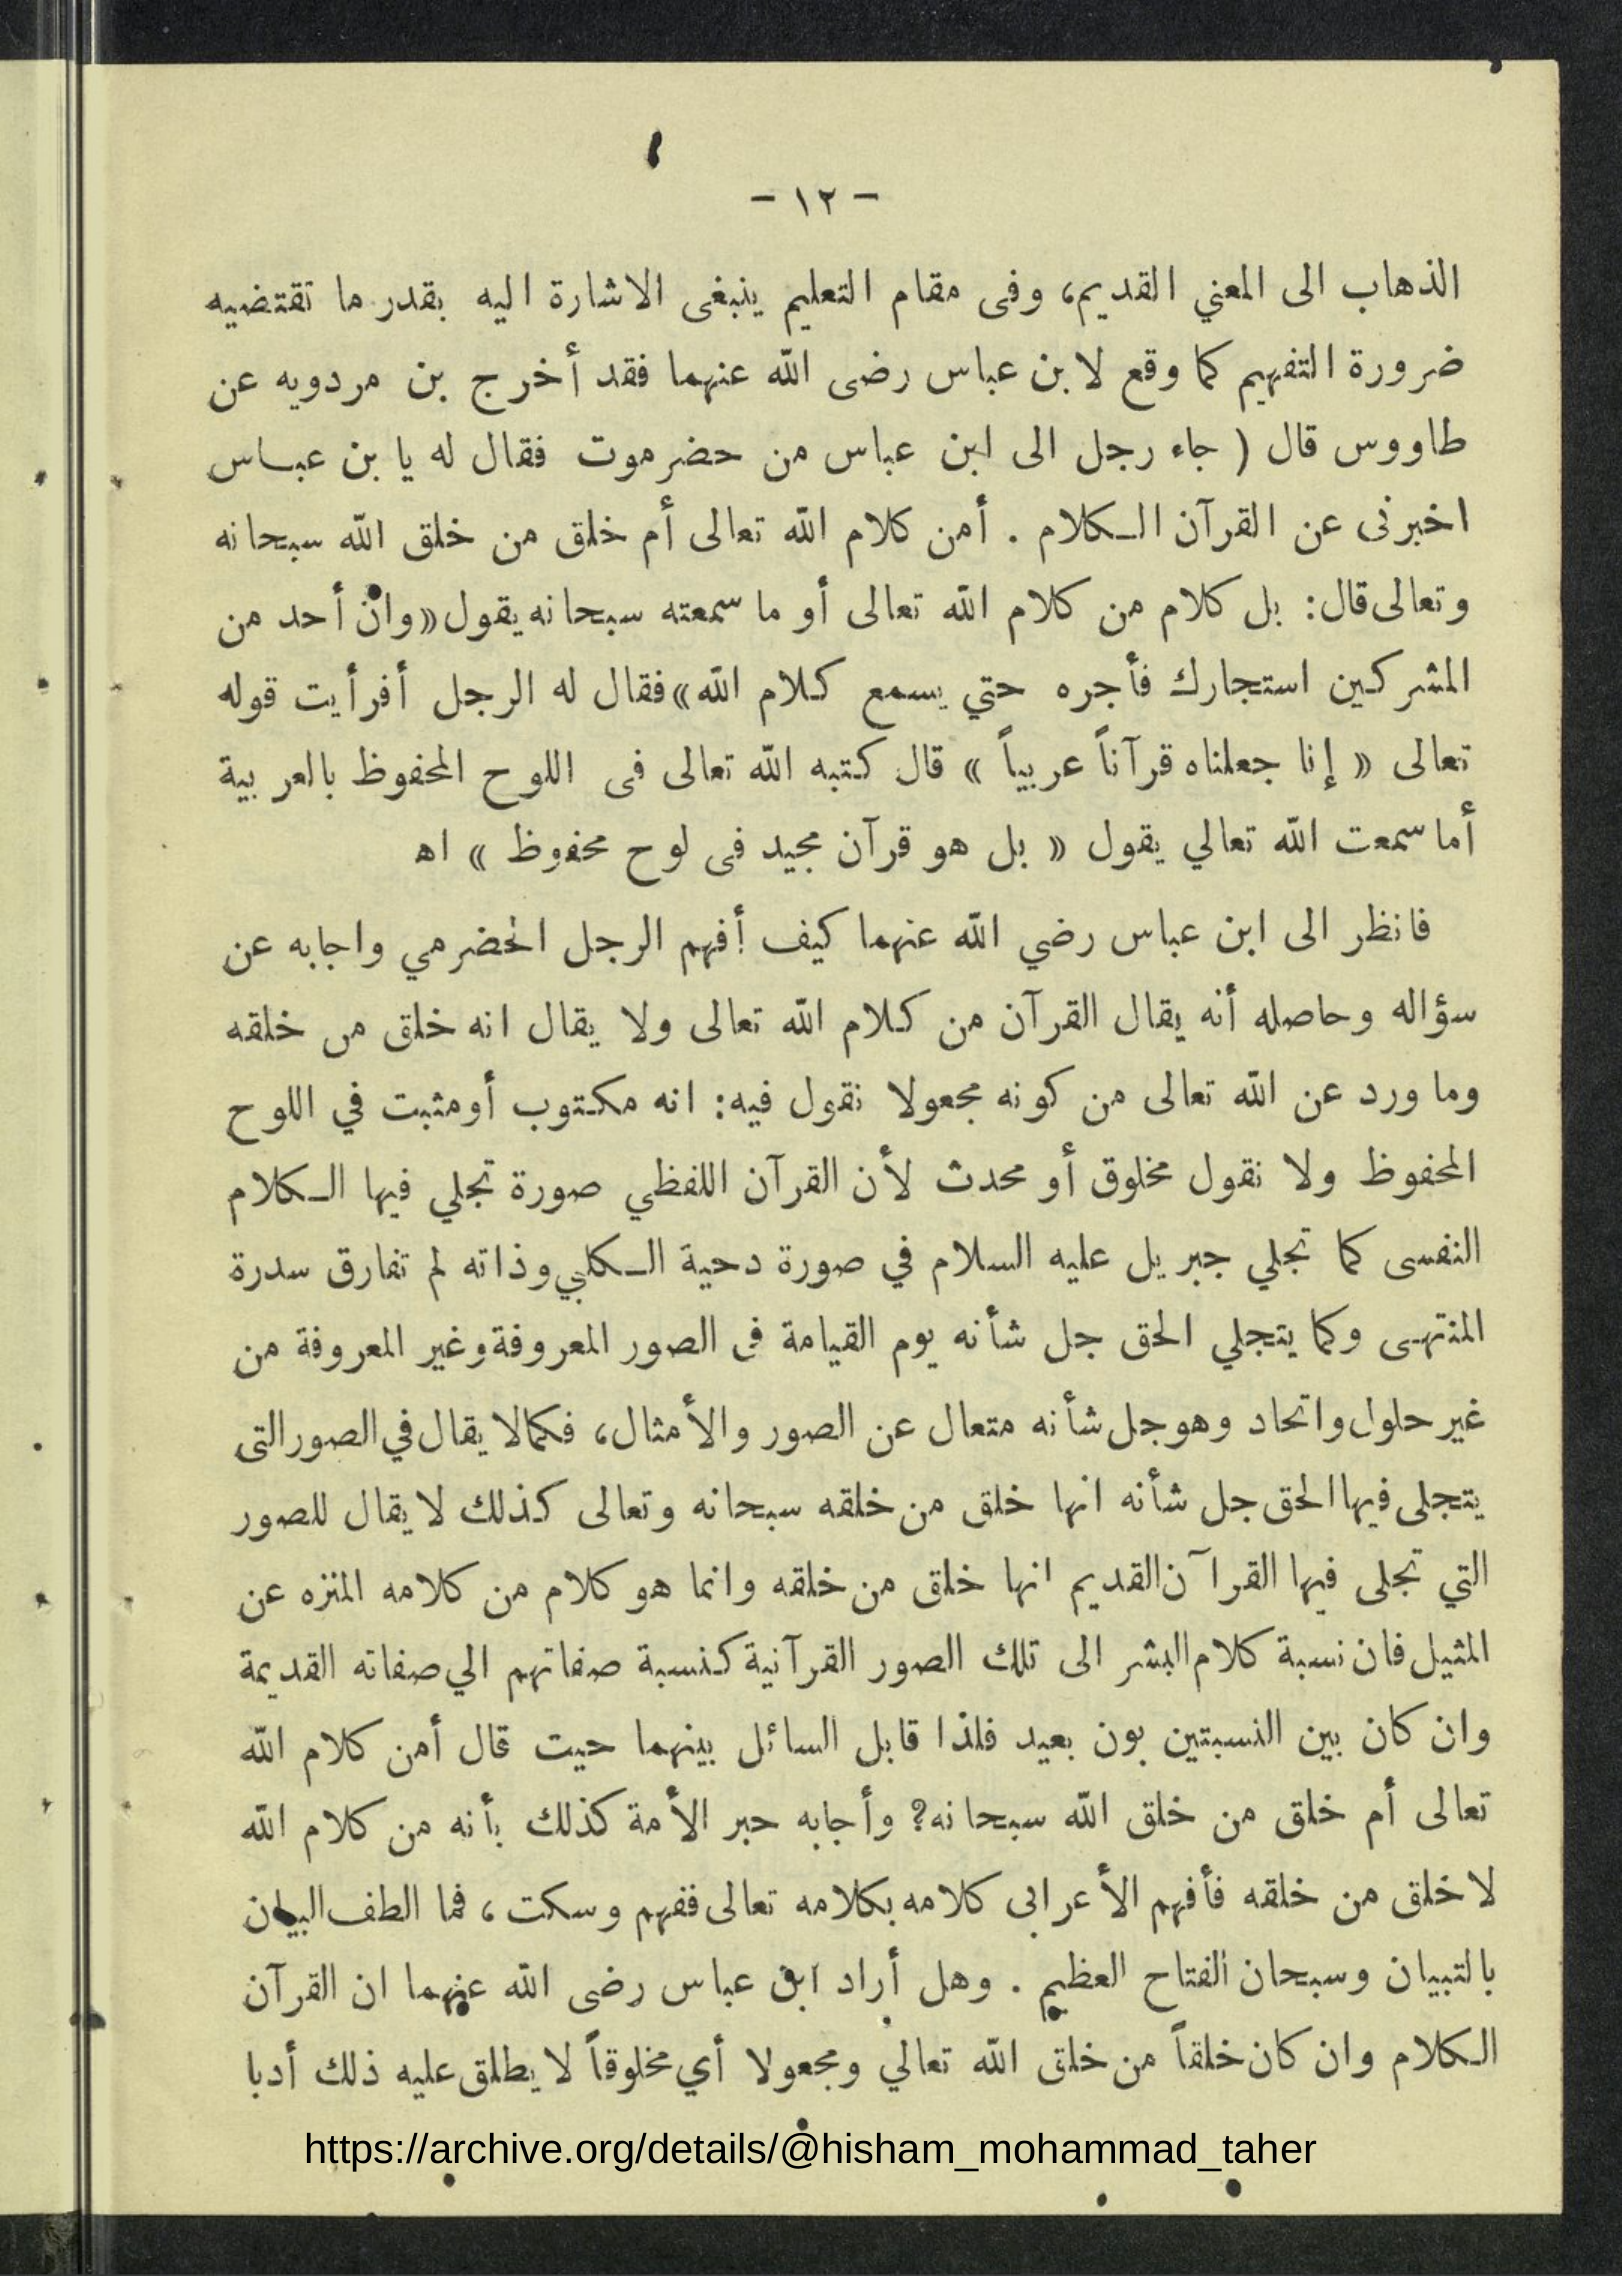 - ١٢ -
الذهاب الى المعني القديم، وفى مقام التعليم ينبغى الاشارة اليه بقدر ما تقتضيه
ضرورة التفهيم كما وقع لابن عباس رضى الله عنهما فقد أخرج بن مردويه عن
طاووس قال ( جاء رجل الى ابن عباس من حضرموت فقال له يا بن عباس
اخبرنى عن القرآن الكلام . أمن كلام الله تعالى أم خلق من خلق الله سبحانه
وتعالى قال: بل كلام من كلام الله تعالى أو ما سمعته سبحانه يقول «وان أحد من
المشركين استجارك فأجره حتي يسمع كلام الله» فقال له الرجل أفرأيت قوله
تعالى « إنا جعلناه قرآناً عربياً » قال كتبه الله تعالى فى اللوح المحفوظ بالعربية
أما سمعت الله تعالي يقول « بل هو قرآن مجيد فى لوح محفوظ » اه
فانظر الى ابن عباس رضي الله عنهما كيف أفهم الرجل الحضرمي واجابه عن
سؤاله وحاصله أنه يقال القرآن من كلام الله تعالى ولا يقال انه خلق من خلقه
وما ورد عن الله تعالى من كونه مجعولا نقول فيه: انه مكتوب أو مثبت في اللوح
المحفوظ ولا نقول مخلوق أو محدث لأن القرآن اللفظي صورة تجلي فيها الكلام
النفسى كما تجلي جبريل عليه السلام في صورة دحية الكلبي وذاته لم تفارق سدرة
المنتهى وكما يتجلي الحق جل شأنه يوم القيامة فى الصور المعروفة وغير المعروفة من
غير حلول واتحاد وهو جل شأنه متعال عن الصور والأمثال، فكمالا يقال في الصور التى
يتجلى فيها الحق جل شأنه انها خلق من خلقه سبحانه وتعالى كذلك لا يقال للصور
التي تجلى فيها القرآن القديم انها خلق من خلقه وانما هو كلام من كلامه المنزه عن
المثيل فان نسبة كلام البشر الى تلك الصور القرآنية كنسبة صفاتهم الي صفاته القديمة
وان كان بين النسبتين بون بعيد فلذا قابل السائل بينهما حيت قال أمن كلام الله
تعالى أم خلق من خلق الله سبحانه؟ وأجابه حبر الأمة كذلك بأنه من كلام الله
لا خلق من خلقه فأفهم الأعرابى كلامه بكلامه تعالى ففهم وسكت، فما الطف البيان
بالتبيان وسبحان الفتاح العظيم . وهل أراد ابن عباس رضى الله عنهما ان القرآن
الكلام وان كان خلقاً من خلق الله تعالي ومجعولا أي مخلوقاً لا يطلق عليه ذلك أدبا
https://archive.org/details/@hisham_mohammad_taher